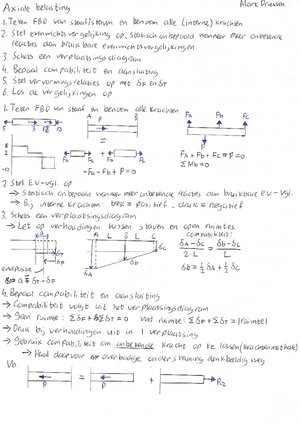 Axiale belasting
Mark Driessen
1. Teken FBD van staaf/staven en benoem alle (interne) krachten
2. Stel evenwichtsvergelijking op. Statisch onbepaald wanneer meer onbekende
reacties dan bruikbare evenwichtsvergelijkingen.
3. Schets een verplaatsingsdiagram
4. Bepaal compatibiliteit en aansluiting
5. Stel vervormingsrelaties op met δF en δT
6. Los de vergelijkingen op
1. Teken FBD van staaf en benoem alle krachten
A B
P
FA FB FC
P
FA + FB + FC - P = 0
ΣMB = 0
-FA - FB + P = 0
2. Stel E.V.-vgl. op
→ Statisch onbepaald wanneer meer onbekende reacties dan bruikbare ev-vgl.
→ Bij interne krachten: trek = positief, druk = negatief
3. Schets een verplaatsingsdiagram
→ Let op verhoudingen tussen staven en open ruimtes
compatibiliteit:
A L B L C
δA - δC / 2·L = δB - δC / L
δB = ½ δA + ½ δC
eindpositie
4. Bepaal compatibiliteit en aansluiting
→ Compatibiliteit volgt uit het verplaatsingsdiagram
→ Geen ruimte: ΣδF + ΣδT = 0 Met ruimte: ΣδF + ΣδT = 1 ruimte!
→ Druk bij verhoudingen uit in 1 verplaatsing
→ Gebruik compatibiliteit om onbekende kracht op te lossen (krachtenmethode)
→ Haal daarvoor overbodige ondersteuning denkbeeldig weg
Vb.
P = P + R2